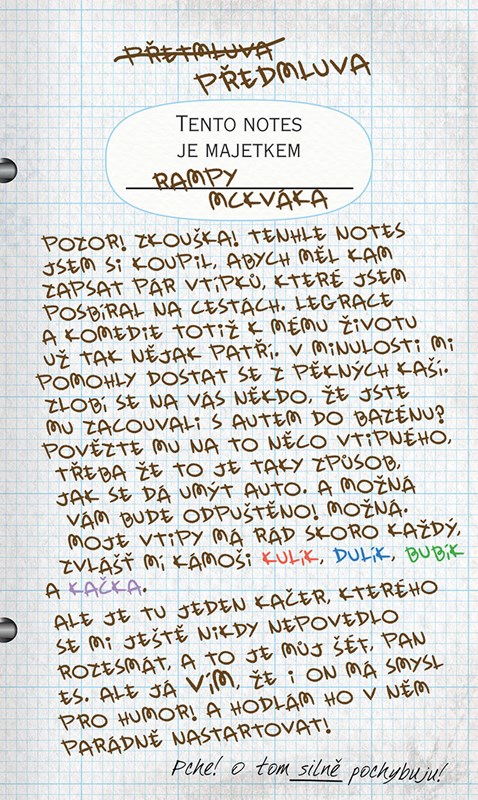 PŘETMLUVA
PŘEDMLUVA
TENTO NOTES
JE MAJETKEM
RAMPY
MCKVÁKA
POZOR! ZKOUŠKA! TENHLE NOTES
JSEM SI KOUPIL, ABYCH MĚL KAM
ZAPSAT PÁR VTIPKŮ, KTERÉ JSEM
POSBÍRAL NA CESTÁCH. LEGRACE
A KOMEDIE TOTIŽ K MÉMU ŽIVOTU
UŽ TAK NĚJAK PATŘÍ. V MINULOSTI MI
POMOHLY DOSTAT SE Z PĚKNÝCH KAŠÍ.
ZLOBÍ SE NA VÁS NĚKDO, ŽE JSTE
MU ZACOUVALI S AUTEM DO BAZÉNU?
POVĚZTE MU NA TO NĚCO VTIPNÉHO,
TŘEBA ŽE TO JE TAKY ZPŮSOB,
JAK SE DÁ UMÝT AUTO. A MOŽNÁ
VÁM BUDE ODPUŠTĚNO! MOŽNÁ.
MOJE VTIPY MÁ RÁD SKORO KAŽDÝ,
ZVLÁŠŤ MI KÁMOŠI KULÍK, DULÍK, BUBÍK
A KAČKA.
ALE JE TU JEDEN KAČER, KTERÉHO
SE MI JEŠTĚ NIKDY NEPOVEDLO
ROZESMÁT, A TO JE MŮJ ŠÉF, PAN
ES. ALE JÁ VÍM, ŽE I ON MÁ SMYSL
PRO HUMOR! A HODLÁM HO V NĚM
PARÁDNĚ NASTARTOVAT!
Pche! O tom silně pochybuju!